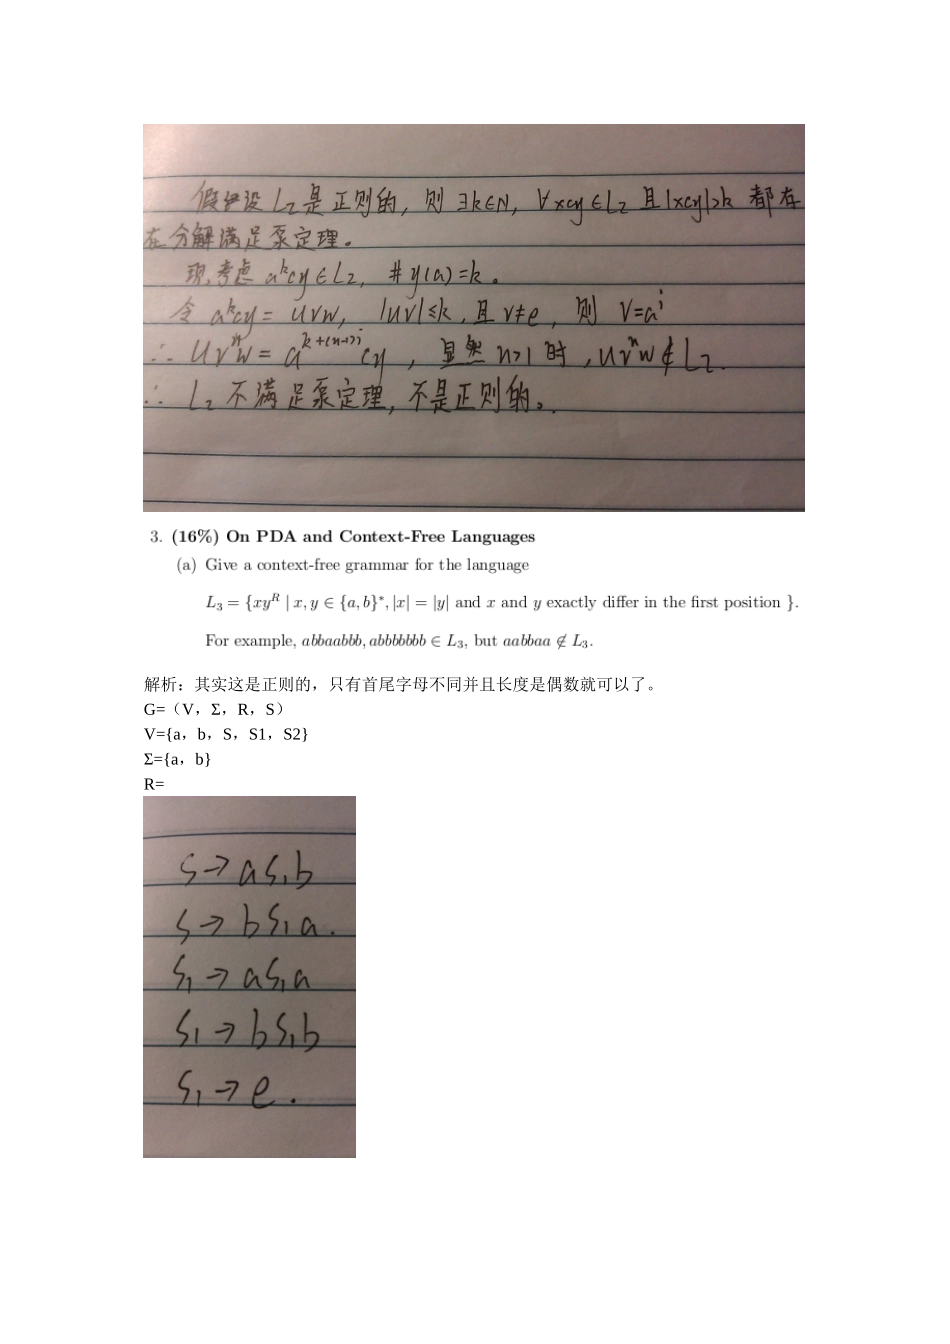 假设设 L₂是正则的, 则 ∃k∈N, ∀xcy∈L₂ 且|xcy|>k 都存
在分解满足泵定理。
现,考虑 aᵏcy∈L₂, #y(a)=k。
令 aᵏcy= uvw, |uv|≤k,且 v≠e, 则 V=aⁱ
∴ uvⁿw= a^{k+(n-1)i}cy , 显然 n>1 时,uvⁿw∉L₂.
∴ L₂不满足泵定理, 不是正则的。
3. (16%) On PDA and Context-Free Languages
(a) Give a context-free grammar for the language
L₃ = {xyᴿ | x, y ∈ {a, b}*, |x| = |y| and x and y exactly differ in the first position }.
For example, abbaabbb, abbbbbbb ∈ L₃, but aabbaa ∉ L₃.
解析：其实这是正则的，只有首尾字母不同并且长度是偶数就可以了。
G=（V，Σ，R，S）
V={a，b，S，S1，S2}
Σ={a，b}
R=
S→aS₁b
S→bS₁a.
S₁→aS₁a
S₁→bS₁b
S₁→e.